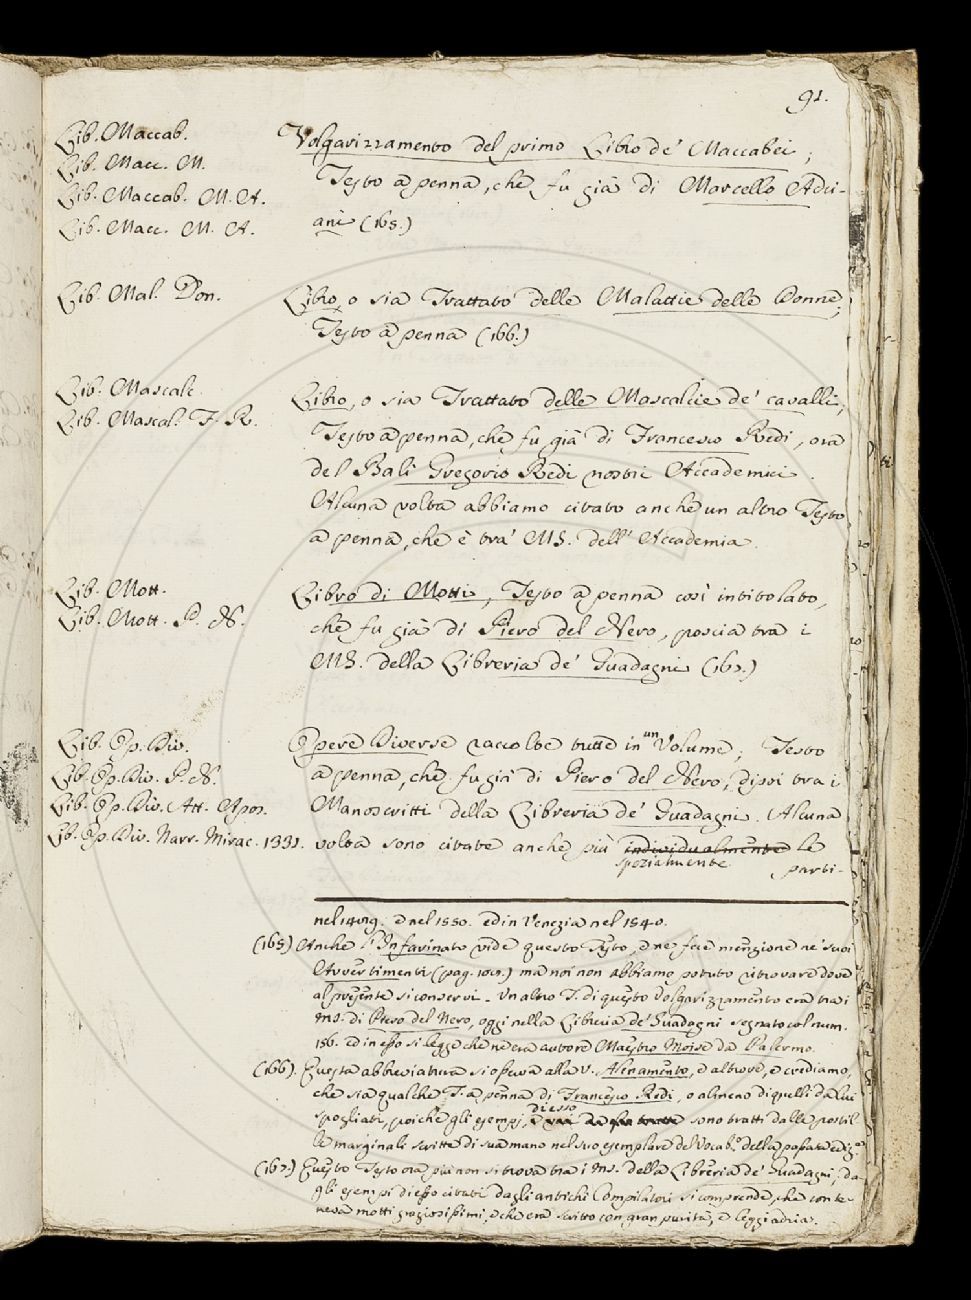 91.
Lib. Maccab.
Lib. Macc. M.
Lib. Maccab. M. A.
Lib. Macc. M. A.
Volgarizzamento del primo Libro de' Maccabei;
Testo a penna, che fu già di Marcello Adri-
ani (165.)
Lib. Mal. Don.
Libro, o sia Trattato delle Malattie delle Donne;
Testo a penna (166.)
Lib. Mascalc.
Lib. Mascal. F. R.
Libro, o sia Trattato delle Mascalcie de' cavalli;
Testo a penna, che fu già di Francesco Redi, ora
del Balì Gregorio Redi nostri Accademici.
Alcuna volta abbiamo citato anche un altro Testo
a penna, che è tra' MS. dell' Accademia.
Lib. Mott.
Lib. Mott. P. N.
Libro di Motti, Testo a penna così intitolato,
che fu già di Piero del Nero, poscia tra i
MS. della Libreria de' Guadagni (167.)
Lib. Op. Div.
Lib. Op. Div. P. N.
Lib. Op. Div. Att. Apos.
Lib. Op. Div. Narr. Mirac. 1331.
Opere Diverse raccolte tutte in un Volume; Testo
a penna, che fu già di Piero del Nero, dipoi tra i
Manoscritti della Libreria de' Guadagni. Alcuna
volta sono citate anche più individualmente le
spezialmente
parti-
nel 1550. ed in Venezia nel 1540.
(165) Anche l'Infarinato vide questo Testo, e ne fece menzione ne' suoi
Avvertimenti (pag.) ma noi non abbiamo potuto ritrovare dove
al presente si conservi. Un altro T. di questo Volgarizzamento era tra i
MS. di Piero del Nero, oggi nella Libreria de' Guadagni segnato col num.
156. ed in esso si legge che ne era autore Maestro Moisè da Palermo.
(166). Questa abbreviatura si osserva alla v. Alenamento, e altrove, e crediamo,
che sia qualche T. a penna di Francesco Redi, o almeno di quelli da lui
spogliati, poichè gli esempj di esso sono tratti dalle postil-
le marginali scritte di sua mano nel suo esemplare del Vocab.º della passata ediz.e
(167.) Questo Testo ora più non si trova tra i MS. della Libreria de' Guadagni, da
gli esempi di esso citati dagli antichi Compilatori si comprende, che conte-
neva motti graziosissimi, e che era scritto con gran purità, e leggiadria.